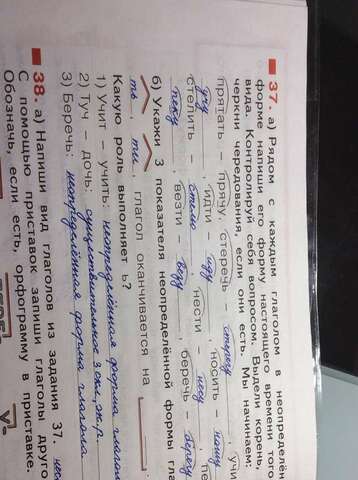 37. а) Рядом с каждым глаголом в неопределён
форме напиши его форму настоящего времени того
вида. Контролируй себя вопросом. Выдели корень,
черкни чередования, если они есть. Мы начинаем:
прятать – прячу, стеречь – стерегу, учи
учу, идти – иду, носить – ношу,
стелить – стелю, нести – несу, пе
пеку, везти – везу, беречь – берегу
б) Укажи 3 показателя неопределённой формы гла
ть, ти, глагол оканчивается на
Какую роль выполняет ь?
1) Учит – учить: неопределённая форма глагол
2) Туч – дочь: существительное 3 скл., ж.р.
3) Беречь: неопределённая форма глагола
38. а) Напиши вид глаголов из задания 37.
С помощью приставок запиши глаголы друго
Обозначь, если есть, орфограмму в приставке.